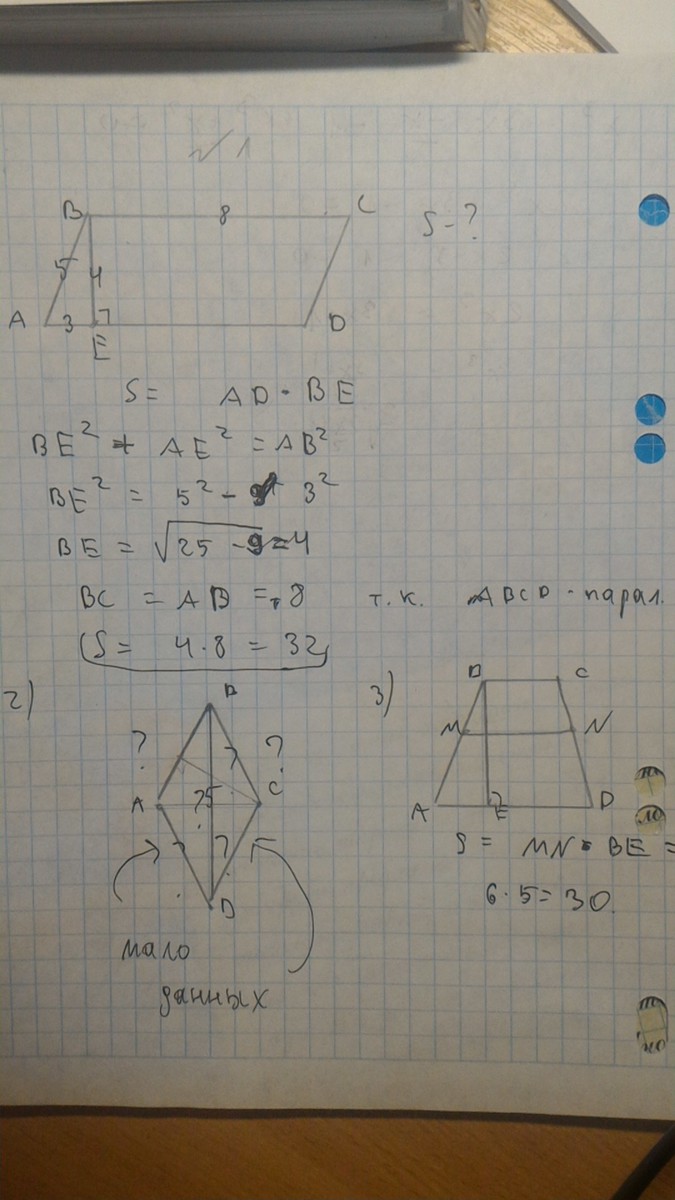 √ 1
B 8 C
S - ?
5 4
A 3 E D
S = AD · BE
BE² + AE² = AB²
BE² = 5² - 3²
BE = √25 - 9 = 4
BC = AD = 8 т.к. ABCD - парал.
S = 4 · 8 = 32
2)
B
? ?
A ? 5 C
D
мало
данных
3)
B C
M N
A E D
S = MN · BE =
6 · 5 = 30.